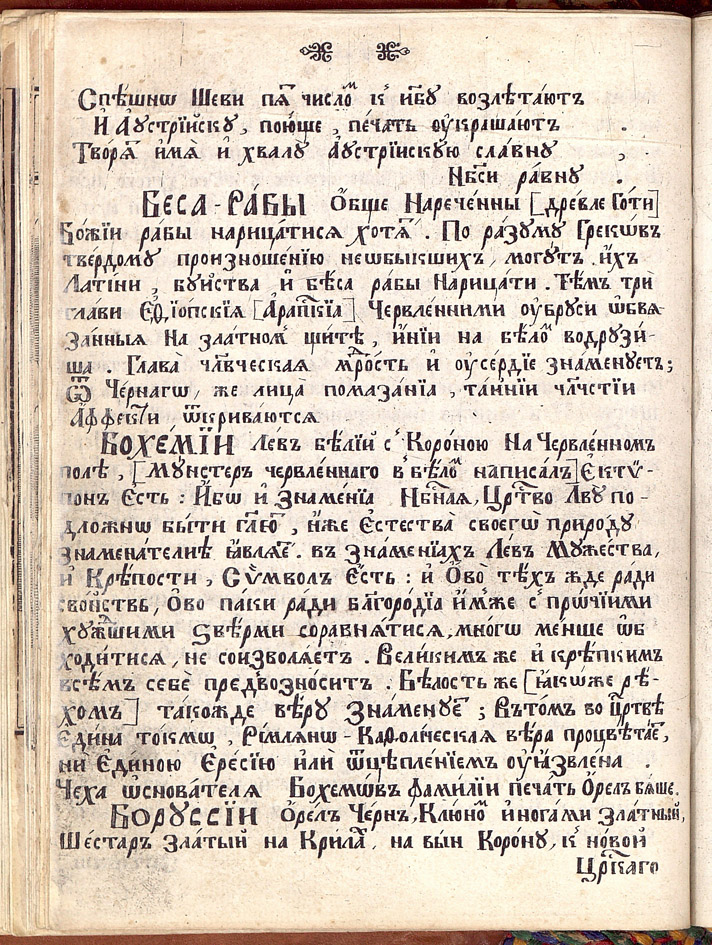 Спѣ́шнѡ Шеви пѧ҃ число̑ᵐ к̾ и҃бу возлѣта́ютъ
И҆ Аѵстрїйску, пою́ще, печа́ть ѹ҆краша́ютъ .
Творѧ҃ и҆мѧ̀ и҆ хвалу̀ Аѵстрїйскую сла́вну ,
Нб҃си ра́вну .
БЕСА - РА́БЫ Ѻ҆́бще Нарече́нны [дре́вле Го́ти]
Бо́жїи рабы̀ нарица́тися хотѧ҃ . По ра́зуму Гре́кѡвъ
тве́рдому произноше́нїю неѡбы́кшихъ, мо́гутъ и҆́хъ
Лати́ни, буи́ства и҆ бѣ́са рабы̀ Нарица́ти . Тѣ́мъ трѝ
глави̑ Еѳїо́пскїѧ [Ара́пс҃кїа] Черве́нними ѹ҆бру́си ѡ҆бвѧ́-
за́нныѧ На зла́тном̾ щи́тѣ, и҆́нїи на бѣ́ло̑ᵐ водрузи́-
ша . Глава̀ чл҃вческая мⷣрость и҆ ѹ҆се́рдїе зна́менуетъ;
Ѿ Че́рнагѡ, же лица̀ помаза́нїа, та́йнїи чл҃чстїи
А҆ффе́кти ѿкрива́ются
БОХЕ́МЇИ Левъ бѣ́лїй с̾ Коро́ною На Червле́нномъ
полѣ̀, [Му́нстеръ червле́ннаго в̾ бѣ́ло̑ᵐ написа́лъ] Е҆ктѵ́-
понъ Е҆́сть : И҆́бѡ и҆ Зна́менїа Нбⷭ҇ная, Црⷭ҇тво Лву̀ по -
дло́жнѡ бы́ти гл҃ю҃, и҆́же Е҆стества̀ своегѡ̀ приро́ду
знамена́телнѣ ꙗ҆влѧ҃е . въ зна́менїахъ Ле́въ Му́жества,
и҆ Крѣ́пости, Сѷ́мволъ Е҆́сть : и҆ Ѻ҆́во тѣ́хъ жде ра́ди
сво́йствъ, Ѻ҆́во па́ки ра́ди бл҃горо́дїа и҆́мже с̾ прѡ́чїими
ху́ждшими Ѕвѣ́рми соравня́тися, мно́гѡ ме́нше ѡ҆б
ходи́тися, не соизволя́етъ . Вели́кимъ же и҆ крѣ́пкимъ
всѣ́мъ себѐ предвозно́ситъ . Бѣ́лость же [ꙗ҆́коже рѣ-
хомъ] та́кожде вѣ́ру Зна́менуе҃ ; Въ то́мъ во Црⷭ҇твѣ
Е҆ди́на то́кмѡ, Ри́млянѡ - Каѳоли́ческая вѣ́ра процвѣта́е҃,
нѝ Е҆ди́ною Е҆ре́сїю и҆лѝ ѿщѣпле́нїемъ ѹ҆ꙗ҆́звлена .
Че́ха ѡ҆снова́теля Бохе́мѡвъ фами́лїи печа́ть Ѻ҆ре́лъ бѧ́ше.
БОРУ́ССЇИ Ѻ҆ре́лъ Че́рнъ, Клю́но̑ᵐ и҆ нога́ми Зла́тный,
Ше́старъ Зла́тый на Крила̑, на вы́н Коро́ну, к̾ но́вой
Црⷭ҇каго